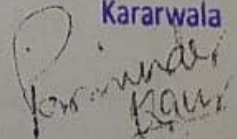 Kararwala
Parminder
Kaur